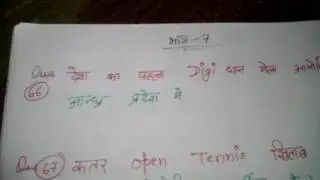 भाग - 7
Ques देश का पहला Digi धन मेला
66 आन्ध्र प्रदेश में
Ques 67 कतर open Tennis खिताब